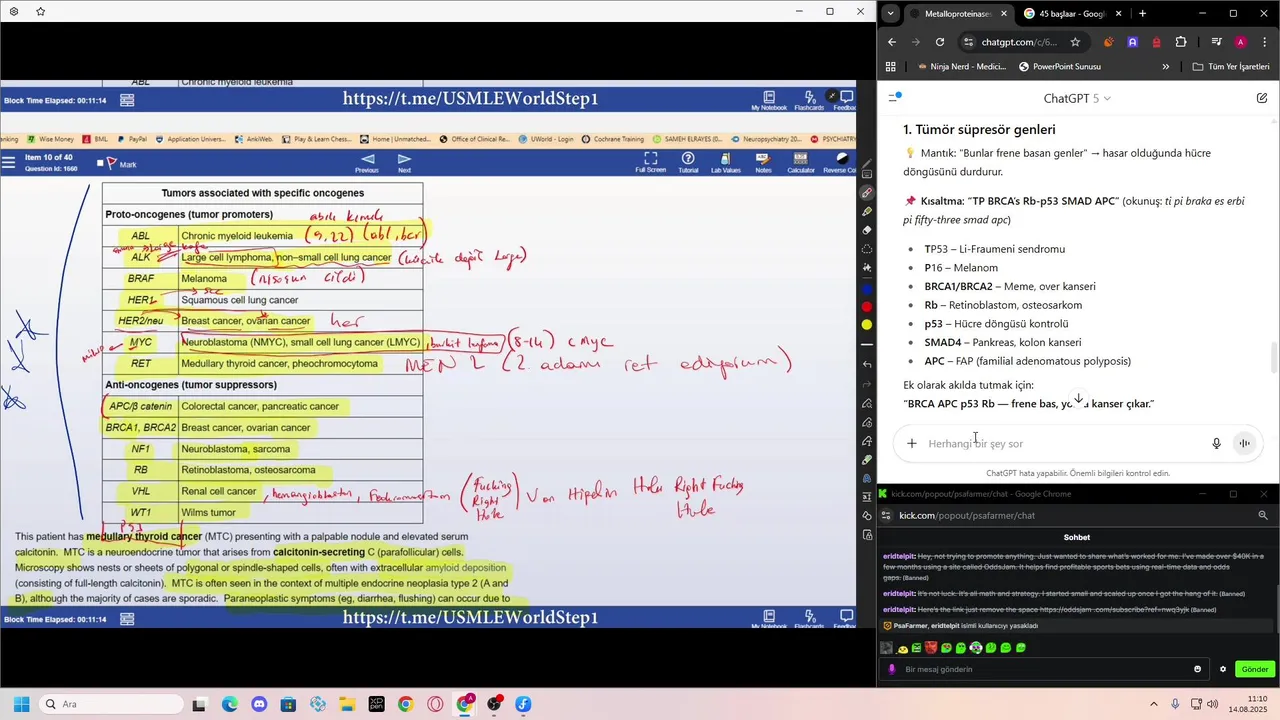 ABL Chronic myeloid leukemia
Block Time Elapsed: 00:11:14
https://t.me/USMLEWorldStep1
My Notebook Flashcards Feedba
anking Wise Money BML PayPal Application Univers... AnkiWeb. Play & Learn Chess... Home | Unmatched... Office of Clinical Re... UWorld - Login Cochrane Training SAMEH ELRAYES (2... Neuropsychiatry 20... PSYCHIATRY
Item 10 of 40
Question Id: 1668
Mark
Previous Next
Full Screen Tutorial Lab Values Notes Calculator Reverse Co
Tumors associated with specific oncogenes
Proto-oncogenes (tumor promoters)
ABL Chronic myeloid leukemia (9,22) (abl, bcr)
ALK Large cell lymphoma, non–small cell lung cancer (küçük değil large)
BRAF Melanoma
HER1 Squamous cell lung cancer
HER2/neu Breast cancer, ovarian cancer her
MYC Neuroblastoma (NMYC), small cell lung cancer (LMYC) (8-14) cmyc
RET Medullary thyroid cancer, pheochromocytoma MEN 2 (2. adamı ret ediyorum)
Anti-oncogenes (tumor suppressors)
APC/β catenin Colorectal cancer, pancreatic cancer
BRCA1, BRCA2 Breast cancer, ovarian cancer
NF1 Neuroblastoma, sarcoma
RB Retinoblastoma, osteosarcoma
VHL Renal cell cancer, hemangioblastom, (fucking Right Hole) Von Hipelin Hole Right Fucking Hole
WT1 Wilms tumor
P53
This patient has medullary thyroid cancer (MTC) presenting with a palpable nodule and elevated serum
calcitonin. MTC is a neuroendocrine tumor that arises from calcitonin-secreting C (parafollicular) cells.
Microscopy shows nests or sheets of polygonal or spindle-shaped cells, often with extracellular amyloid deposition
(consisting of full-length calcitonin). MTC is often seen in the context of multiple endocrine neoplasia type 2 (A and
B), although the majority of cases are sporadic. Paraneoplastic symptoms (eg, diarrhea, flushing) can occur due to
Block Time Elapsed: 00:11:14
https://t.me/USMLEWorldStep1
My Notebook Flashcards Feedba
Metalloproteinases
45 başlaar - Google
chatgpt.com/c/6...
Ninja Nerd - Medici... PowerPoint Sunusu » Tüm Yer İşaretleri
ChatGPT 5
1. Tümör süpresör genleri
Mantık: “Bunlar frene basan genler” → hasar olduğunda hücre
döngüsünü durdurur.
Kısaltma: “TP BRCA’s Rb-p53 SMAD APC” (okunuş: ti pi braka es erbi
pi fifty-three smad apc)
TP53 – Li-Fraumeni sendromu
P16 – Melanom
BRCA1/BRCA2 – Meme, over kanseri
Rb – Retinoblastom, osteosarkom
p53 – Hücre döngüsü kontrolü
SMAD4 – Pankreas, kolon kanseri
APC – FAP (familial adenomatous polyposis)
Ek olarak akılda tutmak için:
“BRCA APC p53 Rb — frene bas, yo a kanser çıkar.”
Herhangi bir şey sor
ChatGPT hata yapabilir. Önemli bilgileri kontrol edin.
kick.com/popout/psafarmer/chat - Google Chrome
kick.com/popout/psafarmer/chat
Sohbet
eridtelpit: Hey, not trying to promote anything. Just wanted to share what's worked for me. I've made over $40K in a
few months using a site called OddsJam. It helps find profitable sports bets using real-time data and odds
gaps. (Banned)
eridtelpit: It's not luck. It's all math and strategy. I started small and scaled up once I got the hang of it. (Banned)
eridtelpit: Here's the link just remove the space https://oddsjam .com/subscribe?ref=nwq3yjk (Banned)
PsaFarmer, eridtelpit isimli kullanıcıyı yasakladı
Bir mesaj gönderin
Gönder
Ara
11:10
14.08.2025